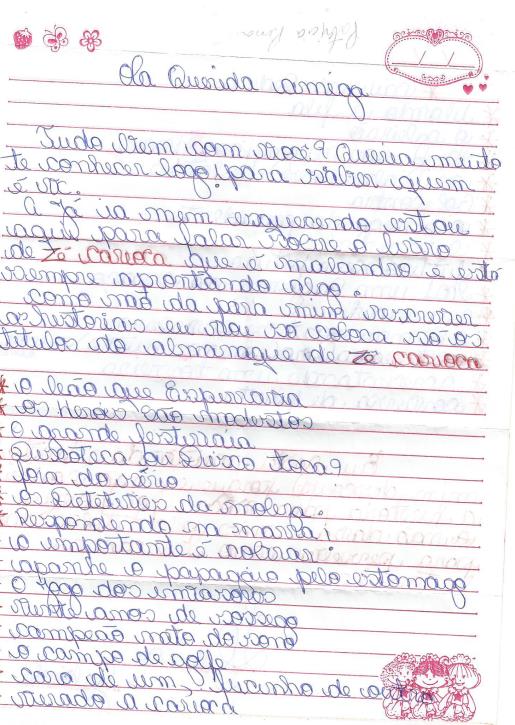 Ola Querida amiga
Tudo bem com você? Queria muito
te conhecer logo! para saber quem
é vc.
A Já ia mem esquecendo estou
aqui para falar sobre o livro
de Zé carioca que é malandro e está
sempre aprontando algo.
como não da para mim rescrever
as historias eu vou só coloca só os
titulos do almanaque de Zé carioca
* o leão que Espirraria
* os Heróis São modestos
- O grande festival
- Discoteca ou Disco toca?
- fora do sério
* os Detetives da moleza.
* Respondendo na marra!
- o importante é cobrar!
- apanhe o papagaio pelo estomago
- O Jogo dos
- vinte anos de sossego
- campeão nato do sono
- o campo de golfe
- cara de um, fucinho de outro
- virado a carioca